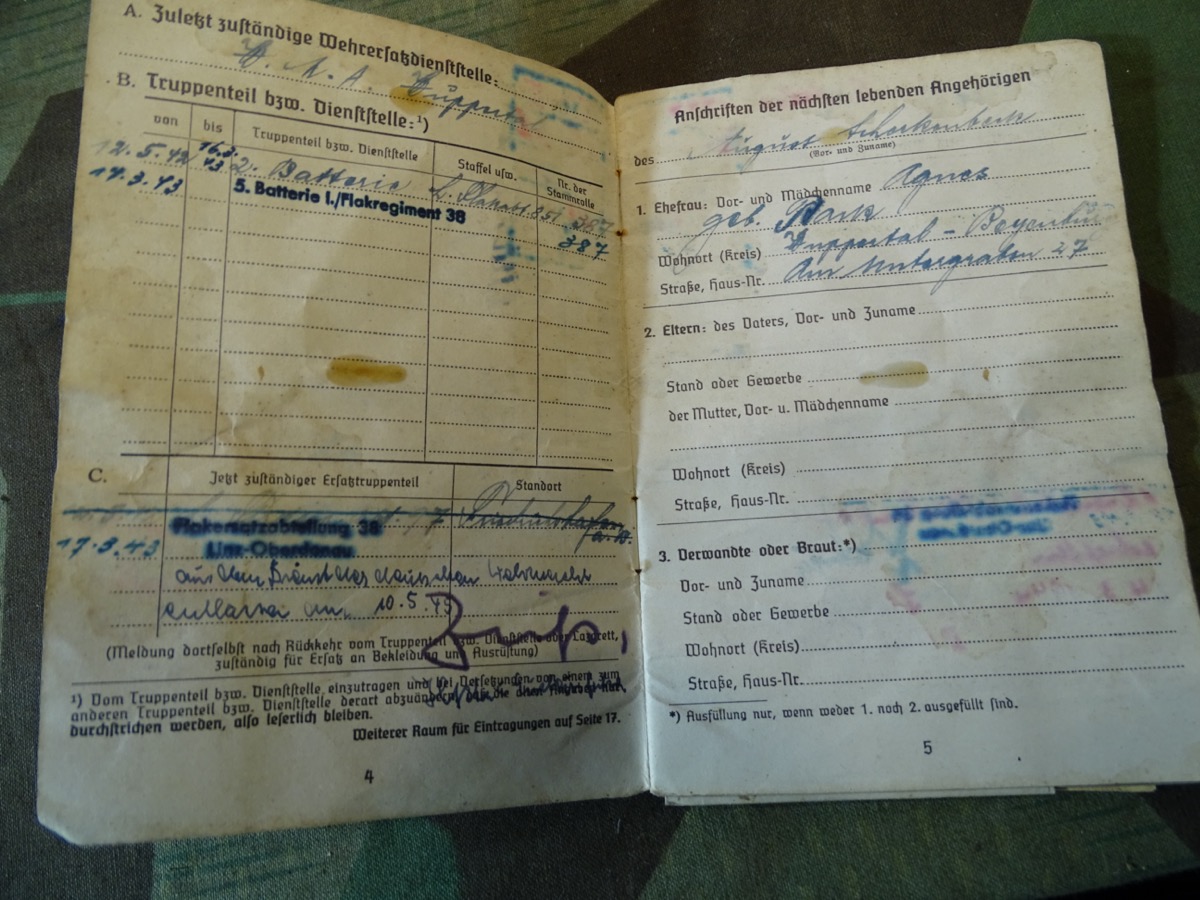 A. Zuletzt zuständige Wehrersatzdienststelle:
W. M. A. Wuppertal
B. Truppenteil bzw. Dienststelle:¹)
von bis Truppenteil bzw. Dienststelle Staffel usw. Nr. der Stammrolle
12.5.42 16.3.43 2. Batterie
17.3.43 5. Batterie I./Flakregiment 38 387
C. Jetzt zuständiger Ersatztruppenteil Standort
Friedrichshafen
17.3.43 Flakersatzabteilung 38
Linz-Oberdonau
aus dem Dienst der deutschen Wehrmacht
entlassen am 10.5.45
(Meldung dortselbst nach Rückkehr vom Truppenteil bzw. Dienststelle oder Lazarett,
zuständig für Ersatz an Bekleidung und Ausrüstung)
¹) Vom Truppenteil bzw. Dienststelle einzutragen und bei Versetzungen von einem zum
anderen Truppenteil bzw. Dienststelle derart abzuändern, daß die alten
durchstrichen werden, also leserlich bleiben.
Weiterer Raum für Eintragungen auf Seite 17.
4
Anschriften der nächsten lebenden Angehörigen
des August
(Vor- und Zuname)
1. Ehefrau: Vor- und Mädchenname Agnes
geb.
Wohnort (Kreis) Wuppertal - Beyenburg
Straße, Haus-Nr. Am Untergraben 27
2. Eltern: des Vaters, Vor- und Zuname
Stand oder Gewerbe
der Mutter, Vor- u. Mädchenname
Wohnort (Kreis)
Straße, Haus-Nr.
3. Verwandte oder Braut:*)
Vor- und Zuname
Stand oder Gewerbe
Wohnort (Kreis)
Straße, Haus-Nr.
*) Ausfüllung nur, wenn weder 1. noch 2. ausgefüllt sind.
5